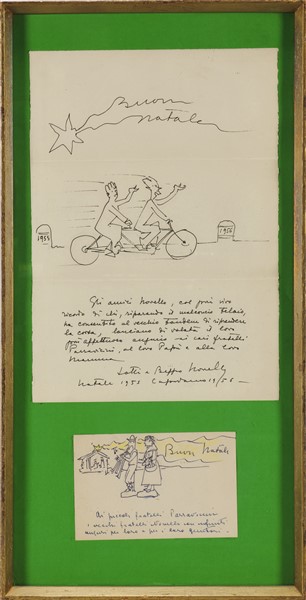 Buon
Natale
1955
1956
Gli amici Novello, col più vivo
ricordo di chi, riparando il malconcio telaio,
ha consentito al vecchio tandem di riprendere
la corsa, lanciano di volata il loro
più affettuoso augurio ai cari fratelli
Parravicini, al loro Papà e alla loro
Mamma.
Lotti e Beppo Novello
Natale 1955 Capodanno 1956
Buon Natale
Ai piccoli fratelli Parravicini
i vecchi fratelli Novello con
auguri per loro e per i loro genitori